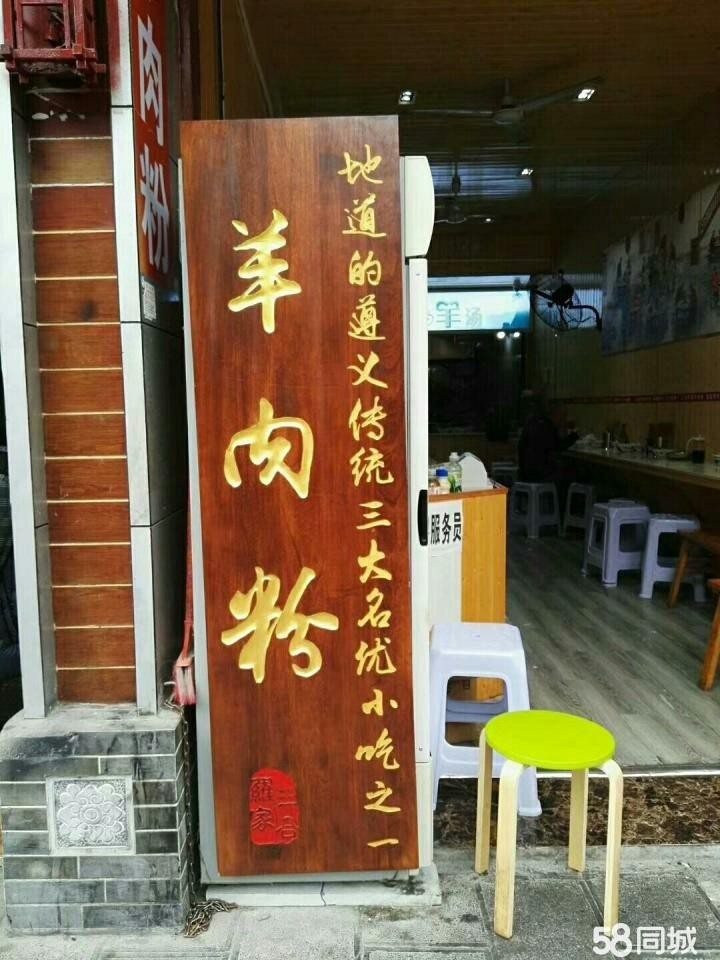 地道的遵义传统三大名优小吃之一
羊肉粉
羅家
二合
肉粉
羊汤
服务员
58同城